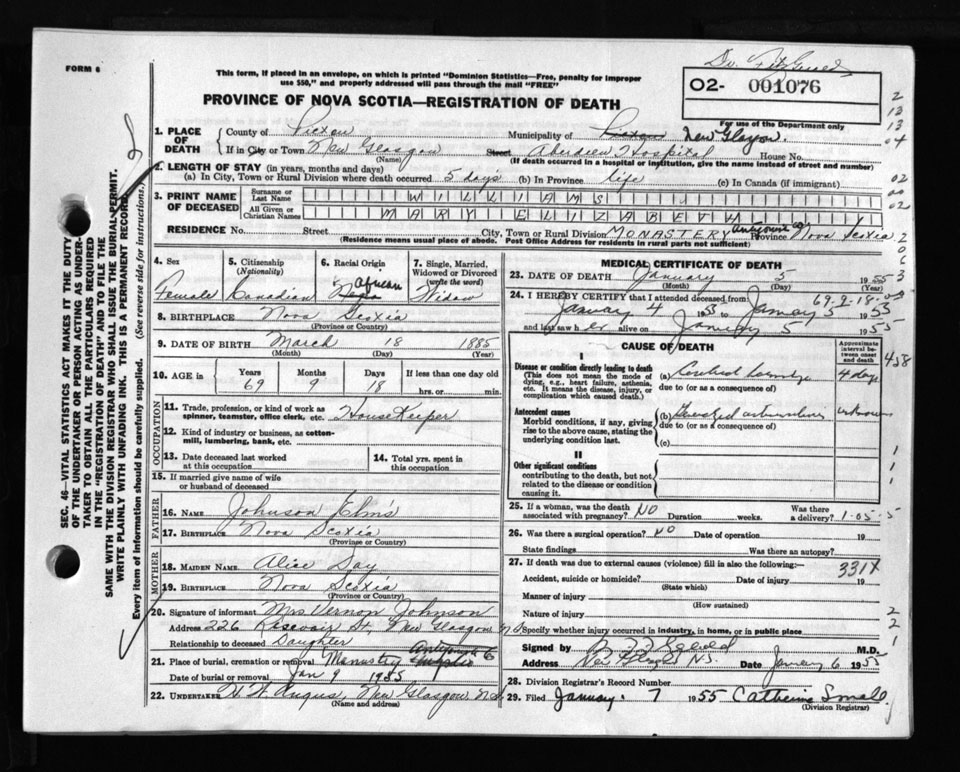 FORM 6
This form, if placed in an envelope, on which is printed "Dominion Statistics—Free, penalty for improper
use $50," and properly addressed will pass through the mail "FREE"
Dr. FitzGerald
PROVINCE OF NOVA SCOTIA—REGISTRATION OF DEATH
O2- 001076
For use of the Department only
1. PLACE OF DEATH
County of Pictou Municipality of Pictou New Glasgow.
If in City or Town New Glasgow (Name) Street Aberdeen Hospital House No.
(If death occurred in a hospital or institution, give the name instead of street and number)
2. LENGTH OF STAY (in years, months and days)
(a) In City, Town or Rural Division where death occurred 5 days (b) In Province life (c) In Canada (if immigrant)
3. PRINT NAME OF DECEASED
Surname or Last Name WILLIAMS
All Given or Christian Names MARY ELIZABETH
RESIDENCE No. Street City, Town or Rural Division MONASTERY Antigonish Co Province Nova Scotia
(Residence means usual place of abode. Post Office Address for residents in rural parts not sufficient)
4. Sex Female
5. Citizenship (Nationality) Canadian
6. Racial Origin African
7. Single, Married, Widowed or Divorced (write the word) Widow
8. BIRTHPLACE Nova Scotia
(Province or Country)
9. DATE OF BIRTH March 18 1885
(Month) (Day) (Year)
10. AGE in Years 69 Months 9 Days 18 If less than one day old hrs. or min.
OCCUPATION
11. Trade, profession, or kind of work as spinner, teamster, office clerk, etc. HouseKeeper
12. Kind of industry or business, as cotton-mill, lumbering, bank, etc.
13. Date deceased last worked at this occupation
14. Total yrs. spent in this occupation
15. If married give name of wife or husband of deceased
FATHER
16. NAME Johnson Elms
17. BIRTHPLACE Nova Scotia
(Province or Country)
MOTHER
18. MAIDEN NAME Alice Day
19. BIRTHPLACE Nova Scotia
(Province or Country)
20. Signature of informant Mrs Vernon Johnson
Address 226 Reservoir St, New Glasgow N.S
Relationship to deceased Daughter
21. Place of burial, cremation or removal Monastry Antigonish Co
Date of burial or removal Jan 9 1955
22. UNDERTAKER H W Angus, New Glasgow, N.S.
(Name and address)
MEDICAL CERTIFICATE OF DEATH
23. DATE OF DEATH January 5 1955
(Month) (Day) (Year)
69-9-18-00
24. I HEREBY CERTIFY that I attended deceased from
January 4 1955 to January 5 1955
and last saw her alive on January 5 1955
CAUSE OF DEATH
Approximate interval between onset and death
I
Disease or condition directly leading to death
(This does not mean the mode of dying, e.g., heart failure, asthenia, etc. It means the disease, injury, or complication which caused death.)
(a) Cerebral 4 days
due to (or as a consequence of)
Antecedent causes
Morbid conditions, if any, giving rise to the above cause, stating the underlying condition last.
(b) unknown
due to (or as a consequence of)
(c)
II
Other significant conditions
contributing to the death, but not related to the disease or condition causing it.
25. If a woman, was the death associated with pregnancy? NO Duration weeks. Was there a delivery? 1-05-5
26. Was there a surgical operation? NO Date of operation 19
State findings Was there an autopsy?
27. If death was due to external causes (violence) fill in also the following: 331X
Accident, suicide or homicide? Date of injury 19
(State which)
Manner of injury
(How sustained)
Nature of injury
Specify whether injury occurred in industry, in home, or in public place
Signed by M.D.
Address New Glasgow N.S. Date January 6 1955
28. Division Registrar's Record Number
29. Filed January 7 1955 Catherine Small
(Division Registrar)
SEC. 46—VITAL STATISTICS ACT MAKES IT THE DUTY
OF THE UNDERTAKER OR PERSON ACTING AS UNDER-
TAKER TO OBTAIN ALL THE PARTICULARS REQUIRED
IN THE "REGISTRATION OF DEATH" AND TO FILE THE
SAME WITH THE DIVISION REGISTRAR WHO SHALL ISSUE THE BURIAL PERMIT.
WRITE PLAINLY WITH UNFADING INK. THIS IS A PERMANENT RECORD.
Every item of information should be carefully supplied. (See reverse side for instructions.)
2
13
13
04
02
00
02
458